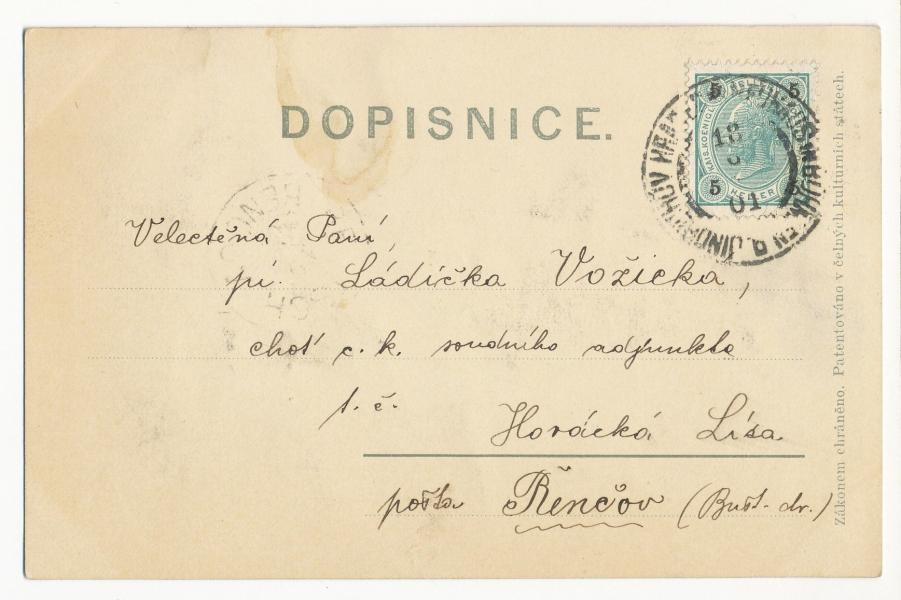 DOPISNICE.
5 5
18
5 HELLER 5
01
Velectěná Paní,
pí. Ládíčka Vožicka,
choť c. k. soudního adjunkta
t. č.
Horácká Lísa
pošta Řenčov (Bušt. dr.)
Zákonem chráněno. Patentováno v čelných kulturních státech.